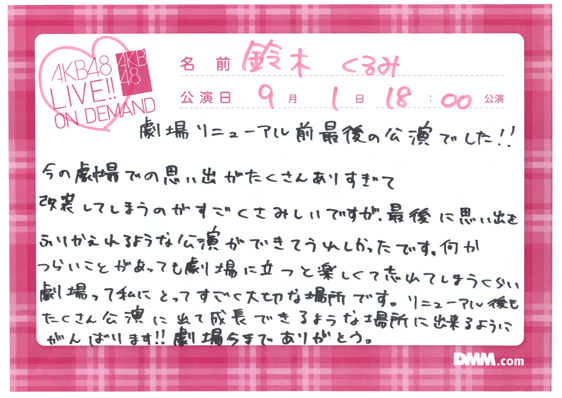 AKB48
LIVE!!
ON DEMAND
AKB
48
名前 鈴木 くるみ
公演日 9月 1日 18:00 公演
劇場リニューアル前最後の公演でした!!
今の劇場での思い出がたくさんありすぎて
改装してしまうのがすごくさみしいですが、最後に思い出を
ふりかえれるような公演ができてうれしかったです。何か
つらいことがあっても劇場に立つと楽しくて忘れてしまうくらい
劇場って私にとってすごく大切な場所です。リニューアル後も
たくさん公演に出て成長できるような場所に出来るように
がんばります!! 劇場今までありがとう。
DMM.com